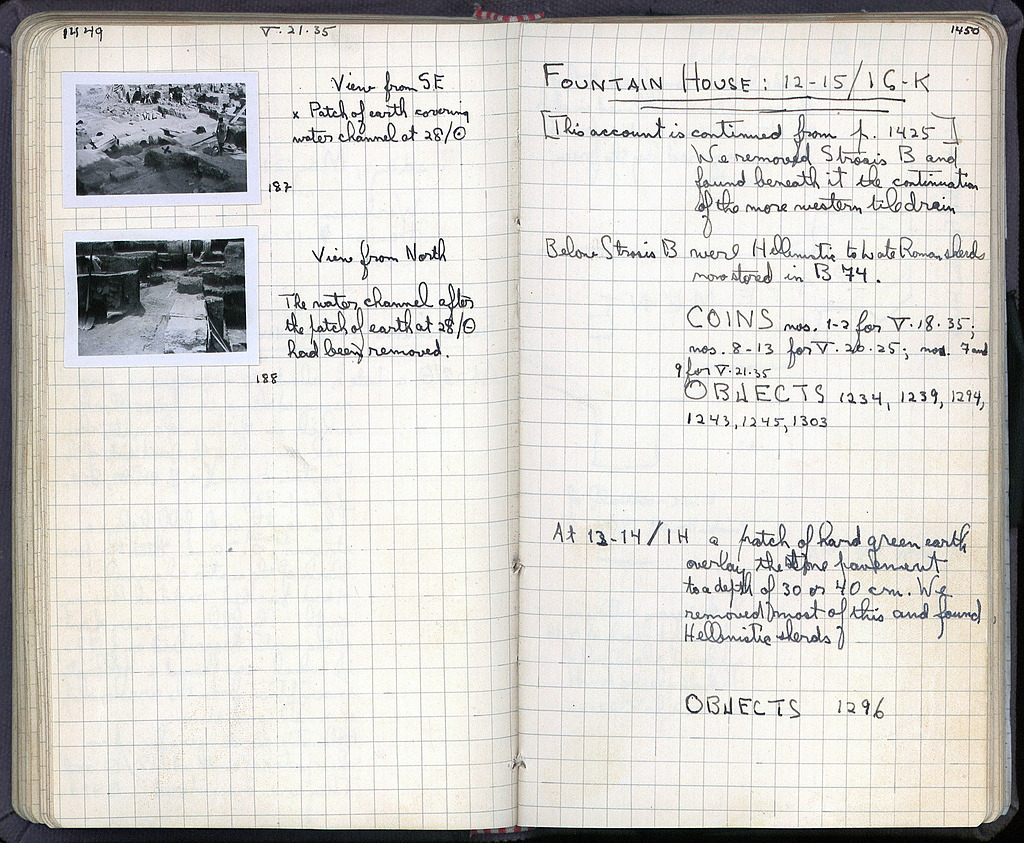 1449
V.21.35
View from SE
x Patch of earth covering
water channel at 28/Θ
187
View from North
The water channel after
the patch of earth at 28/Θ
had been removed.
188
1450
FOUNTAIN HOUSE: 12-15/IG-K
[This account is continued from p. 1425]
We removed Strosis B and
found beneath it the continuation
of the more western tile drain
Below Strosis B were Hellenistic to Late Roman sherds
now stored in B 74.
COINS nos. 1-2 for V.18.35;
nos. 8-13 for V.20.25; nos. 7 and
9 for V.21.35
OBJECTS 1234, 1239, 1294,
1243, 1245, 1303
At 13-14/IH a patch of hard green earth
overlay the stone pavement
to a depth of 30 or 40 cm. We
removed most of this and found
Hellenistic sherds
OBJECTS 1296